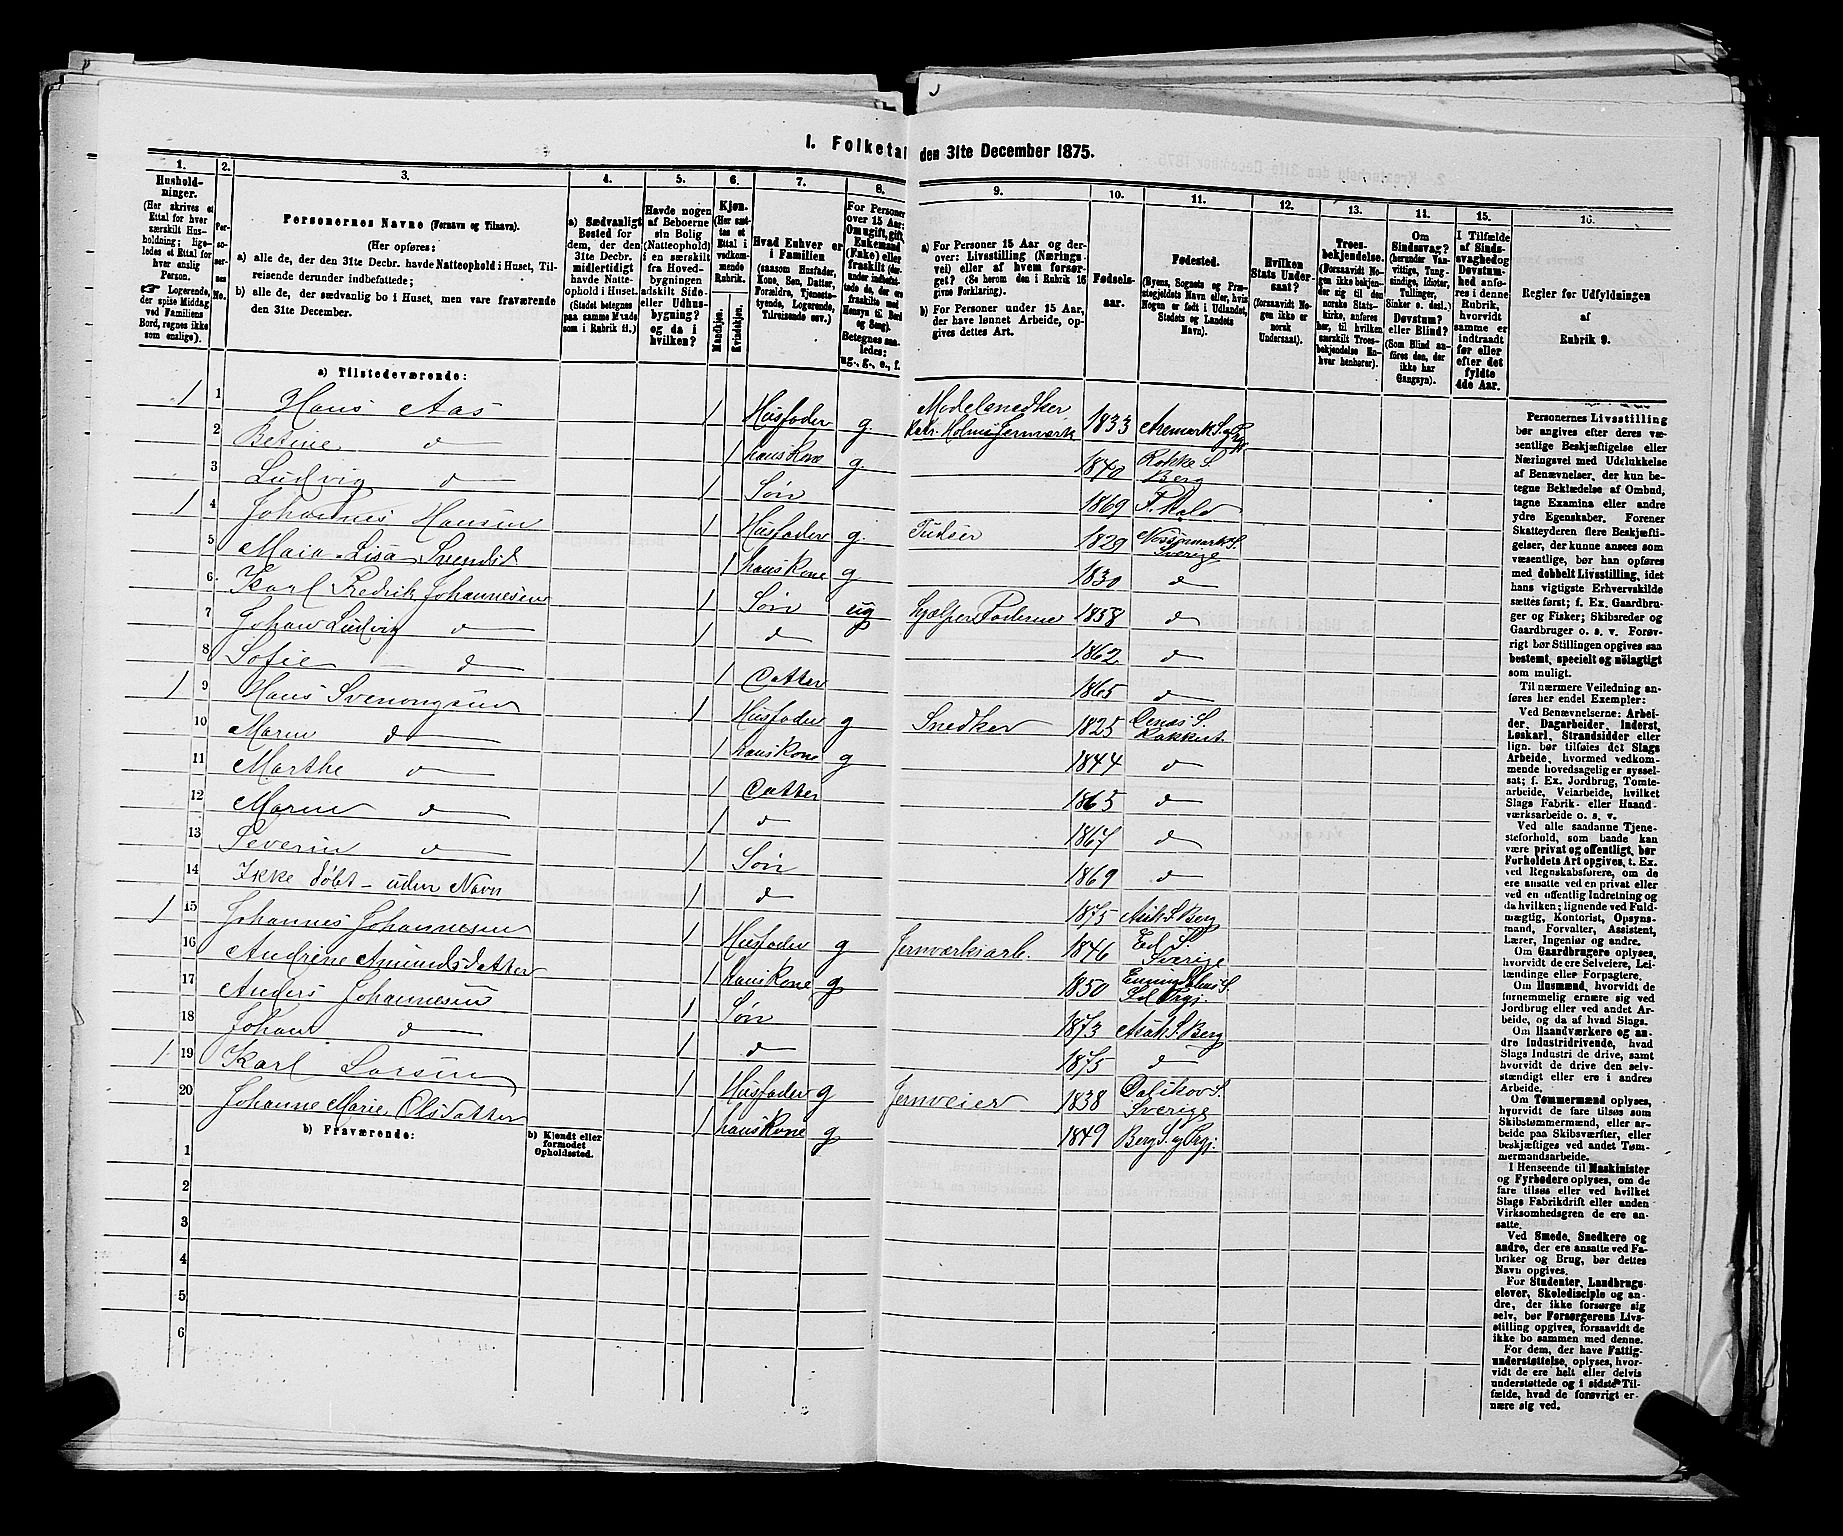 I. Folketal den 31te December 1875.
1. 2. 3. 4. 5. 6. 7. 8. 9. 10. 11. 12. 13. 14. 15. 16.
Husholdninger. (Her skrives et Ettal for hver særskilt Husholdning; ligeledes et Ettal for hver enslig Person.
Logerende, der spise Middag ved Familiens Bord, regnes ikke som enslige).
Personernes No.
Personernes Navne (Fornavn og Tilnavn).
(Her opføres:
a) alle de, der den 31te Decbr. havde Natteophold i Huset, Tilreisende derunder indbefattede;
b) alle de, der sædvanlig bo i Huset, men vare fraværende den 31te December.
a) Sædvanligt Bosted for dem, der den 31te Decbr. midlertidigt havde Natteophold i Huset. (Stedet betegnes paa samme Maade som i Rubrik 11.)
Havde nogen af Beboerne sin Bolig (Natteophold) i en særskilt fra Hovedbygningen adskilt Side- eller Udhusbygning? og da i hvilken?
Kjøn. (Her sættes et Ettal i vedkommende Rubrik.
Mandkjøn. Kvindekjøn.
Hvad Enhver er i Familien (saasom Husfader, Kone, Søn, Datter, Forældre, Tjenestetyende, Logerende, Tilreisende osv.)
For Personer over 15 Aar: Om ugift, gift, Enkemand (Enke) eller fraskilt Betegnes saaledes: ug., g., e., f.
a) For Personer 15 Aar og derover: Livsstilling (Næringsvei) eller af hvem forsørget? (Se herom den i Rubrik 16 givne Forklaring).
b) For Personer under 15 Aar, der have lønnet Arbeide, opgives dettes Art.
Fødselsaar.
Fødested. (Byens, Sognets og Præstegjeldets Navn eller, hvis Nogen er født i Udlandet, Stedets og Landets Navn).
Hvilken Stats Undersaat? (forsaavidt Nogen ikke er norsk Undersaat).
Troesbekjendelse. (Forsaavidt Nogen ikke bekjender sig til den norske Statskirke, anføres her, til hvilken særskilt Troesbekjendelse Enhver henhører).
Om Sindssvag? (herunder Vanvittige, Tungsindige, Idioter, Tullinger, Sinker o. desl.) Døvstum? eller Blind? (Som Blind anføres den, der ikke har Gangsyn).
I Tilfælde af Sindssvaghed og Døvstumhed anføres i denne Rubrik, hvorvidt samme er indtraadt før eller efter det fyldte 4de Aar.
Regler for Udfyldningen af Rubrik 9.
a) Tilstedeværende:
1 1 Hans Aas 1 Husfader g. Modelsnedker Holms Jernværk 1833 Aremark S. og Prgj
2 Betine d 1 hans Kone g 1840 Rokke S. Berg
3 Ludvig d 1 Søn 1869 F. Hald
1 4 Johannes Hansen 1 Husfader g. 1829 S. Sverige
5 Maia Lisa Svendsd 1 hans Kone g 1830 d
6 Karl Fredrik Johannesen 1 Søn ug hjælper Faderen 1858 d
7 Johan Ludvig d 1 d 1862 d
8 Sofie d 1 Datter 1865 d
1 9 Hans 1 Husfader g Snedker 1825
10 Maren d 1 hans Kone g 1844 d
11 Marthe d 1 Datter 1865 d
12 Maren d 1 d 1867 d
13 Severin d 1 Søn 1869 d
14 Ikke døbt – uden Navn 1 d 1875 Asak S. Berg
1 15 Johannes Johannesen 1 Husfader g Jernværksarb. 1846 Ed S. Sverige
16 Andrine Amundsdatter 1 hans Kone g 1850
17 Anders Johannesen 1 Søn 1873 Asak S. Berg
18 Johan d 1 d 1875 d
1 19 Karl Larsen 1 Husfader g Jernveier 1838 S. Sverige
20 Johanne Marie Olsdatter 1 hans Kone g 1849 Berg S. og Prgj.
b) Fraværende:
b) Kjendt eller formodet Opholdssted.
1
2
3
4
5
6
Personernes Livsstilling bør angives efter deres væsentlige Beskjæftigelse eller Næringsvei med Udelukkelse af Benævnelser, der kun betegne Beklædelse af Ombud, tagne Examina eller andre ydre Egenskaber. Forener Skatteyderen flere Beskjæftigelser, der kunne ansees som væsentlige, bør han opføres med dobbelt Livsstilling, idet hans vigtigste Erhvervskilde sættes først; f. Ex. Gaardbruger og Fisker; Skibsreder og Gaardbruger o. s. v. Forøvrigt bør Stillingen opgives saa bestemt, specielt og nöiagtigt som muligt.
Til nærmere Veiledning anføres her endel Exempler:
Ved Benævnelserne: Arbeider, Dagarbeider, Inderst, Løskarl, Strandsidder eller lign. bør tilføies det Slags Arbeide, hvormed vedkommende hovedsagelig er sysselsat; f. Ex. Jordbrug, Tomtearbeide, Veiarbeide, hvilket Slags Fabrik- eller Haandværksarbeide o. s. v.
Ved alle saadanne Tjenesteforhold, som baade kan være privat og offentligt, bør Forholdets Art opgives, t. Ex. ved Regnskabsførere, om de ere ansatte ved en privat eller ved en offentlig Indretning og da hvilken; lignende ved Fuldmægtig, Kontorist, Opsynsmand, Forvalter, Assistent, Lærer, Ingeniør og andre.
Om Gaardbrugere oplyses, hvorvidt de ere Selveiere, Leilændinge eller Forpagtere.
Om Husmænd, hvorvidt de fornemmelig ernære sig ved Jordbrug eller ved andet Arbeide, og da af hvad Slags.
Om Haandværkere og andre Industridrivende, hvad Slags Industri de drive, samt hvorvidt de drive den selvstændigt eller ere i andres Arbeide.
Om Tømmermænd oplyses, hvorvidt de fare tilsøs som Skibstømmermænd, eller arbeide paa Skibsværfter, eller beskjæftiges ved andet Tømmermandsarbeide.
I Henseende til Maskinister og Fyrbødere oplyses, om de fare tilsøs eller ved hvilket Slags Fabrikdrift eller anden Virksomhedsgren de ere ansatte.
Ved Smede, Snedkere og andre, der ere ansatte ved Fabriker og Brug, bør dettes Navn opgives.
For Studenter, Landbrugselever, Skoledisciple og andre, der ikke forsørge sig selv, bør Forsørgerens Livsstilling opgives, forsaavidt de ikke bo sammen med denne.
For dem, der have Fattigunderstøttelse, oplyses, hvorvidt de ere helt eller delvis understøttede og i sidste Tilfælde, hvad de forøvrigt ernære sig ved.